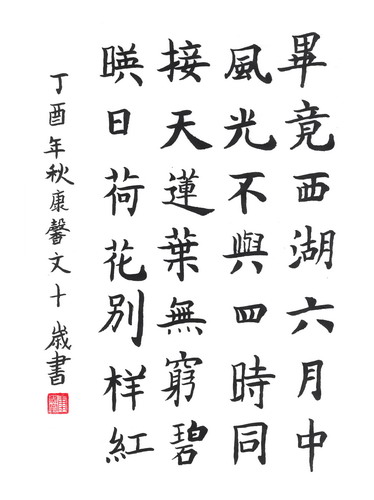 畢竟西湖六月中
風光不與四時同
接天蓮葉無窮碧
暎日荷花别样紅
丁酉年秋康馨文十歲書